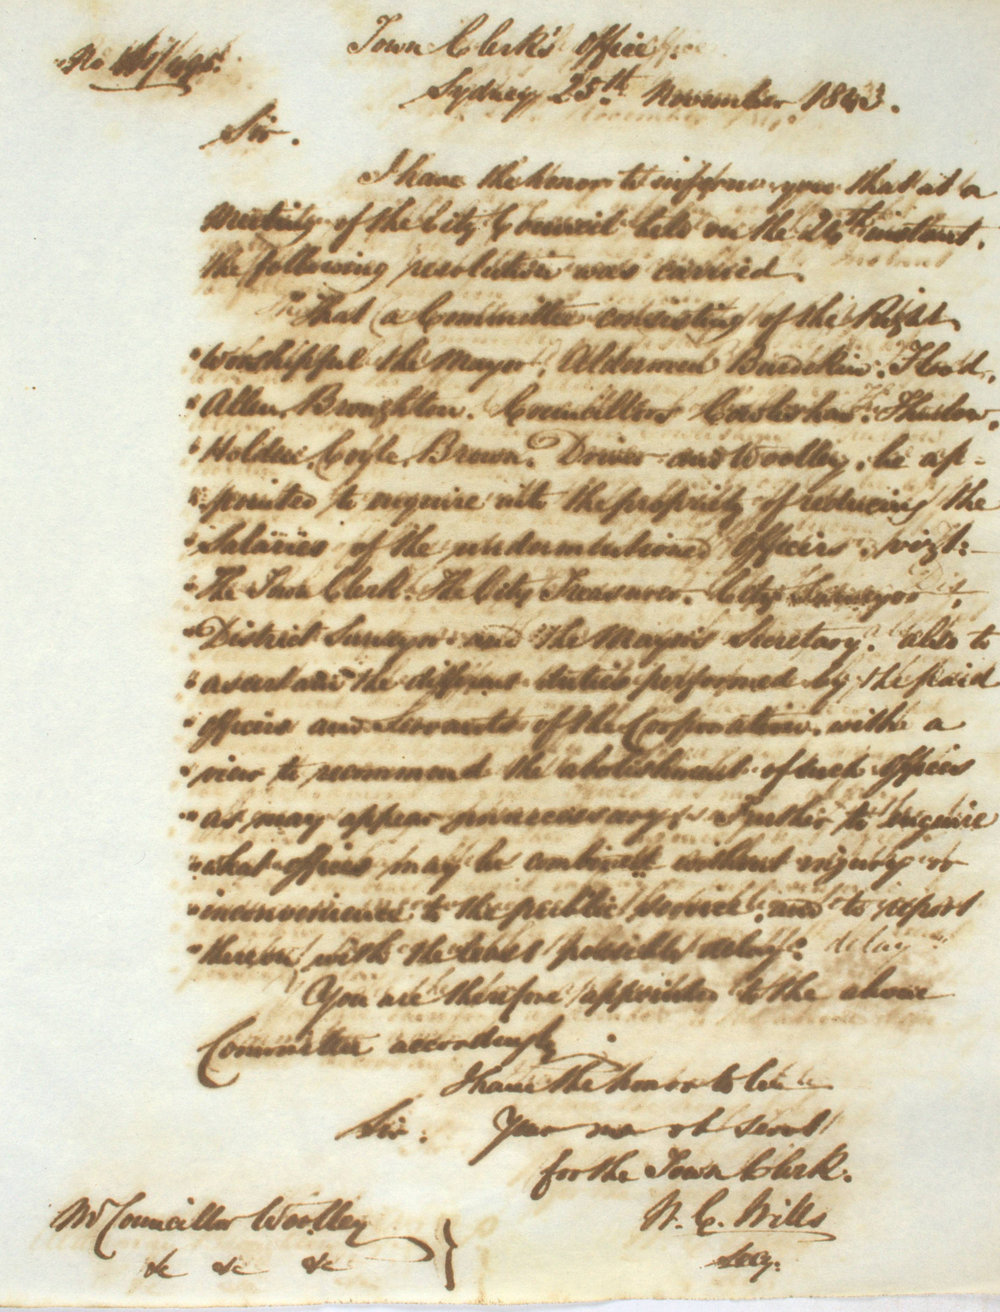 Town Clerk's Office
Sydney 25th November 1843.
Sir.
I have the honor to inform you that at a
meeting of the City Council held on the 24th instant,
the following resolution was carried.
"That a Committee consisting of the Right
"Worshipful the Mayor. Aldermen Burdekin. Flood.
"Allen, Broughton. Councillors Thurlow,
"Holden Coyle. Brown. Driver and Woolley, be ap-
"pointed to inquire into the propriety of reducing the
"Salaries of the undermentioned Officers. vizt:-
"The Town Clerk. The City Treasurer. City Surveyor.
"District Surveyor and the Mayor's Secretary. also to
"ascertain the different duties performed by the paid
"officers and Servants of the Corporation, with a
"view to recommend the abolishment of such offices
"as may appear unnecessary. Further to inquire
"what offices may be combined without injury or
"inconvenience to the public service and to report
"thereon, with the least possible delay." delay
You are therefore appointed to the above
Committee accordingly.
I have the honor to be
Sir. Your mo ob Servt
for the Town Clerk.
W. C. Wills
Secy.
Mr Councillor Woolley
&c &c &c